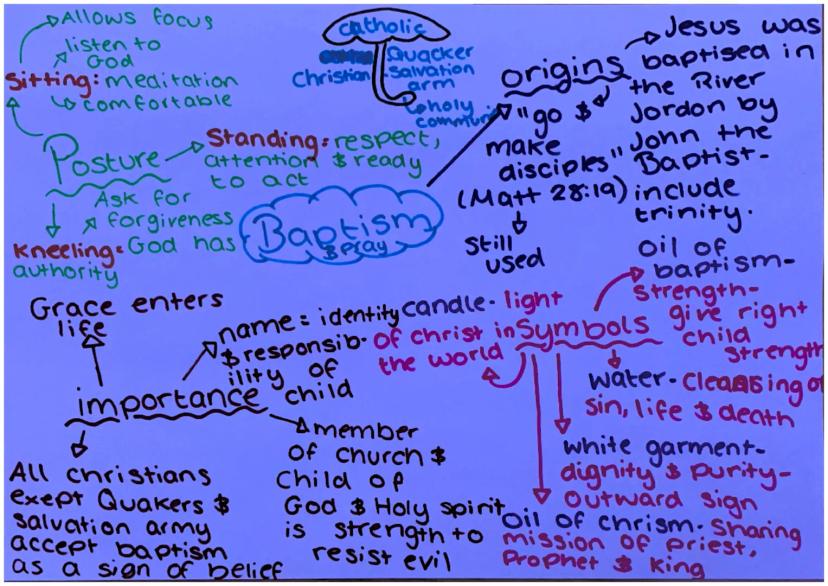 Allows focus
listen to
God
Sitting: meditation
comfortable
Posture
Standing: respect,
attention & ready
to act
Ask for
forgiveness
Kneeling: God has
authority
catholic
Christian
Quacker
Salvation
arm
holy
communi
Baptism
& pray
origins
"go &
make
disciples"
(Matt 28:19)
still
used
Jesus was
baptised in
the River
Jordon by
John the
Baptist-
include
trinity.
Grace enters
life
name = identity
& responsib-
ility of
child
importance
member
of church &
Child of
God & Holy spirit
is strength to
resist evil
All christians
exept Quakers &
salvation army
accept baptism
as a sign of belief
Symbols
candle - light
of christ in
the world
oil of
baptism-
strength-
give right
child
strength
water - Cleansing o
sin, life & death
white garment-
dignity & purity-
outward sign
oil of chrism - Sharing
mission of priest,
Prophet & king